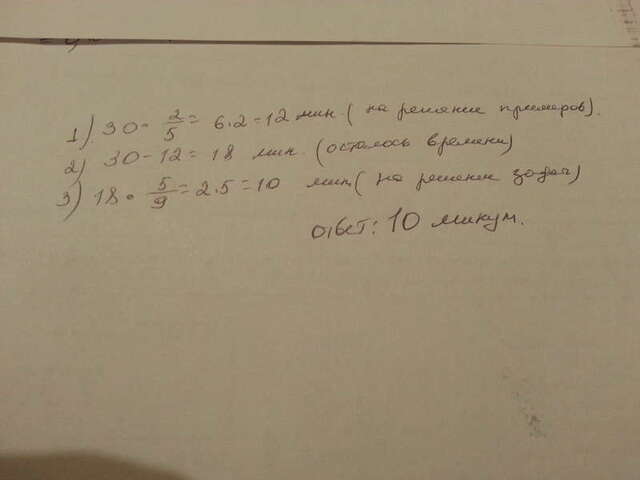 1) 30 · 2/5 = 6·2 = 12 мин. (на решение примеров).
2) 30 - 12 = 18 мин. (осталось времени)
3) 18 · 5/9 = 2·5 = 10 мин. (на решение задач)
Ответ: 10 минут.